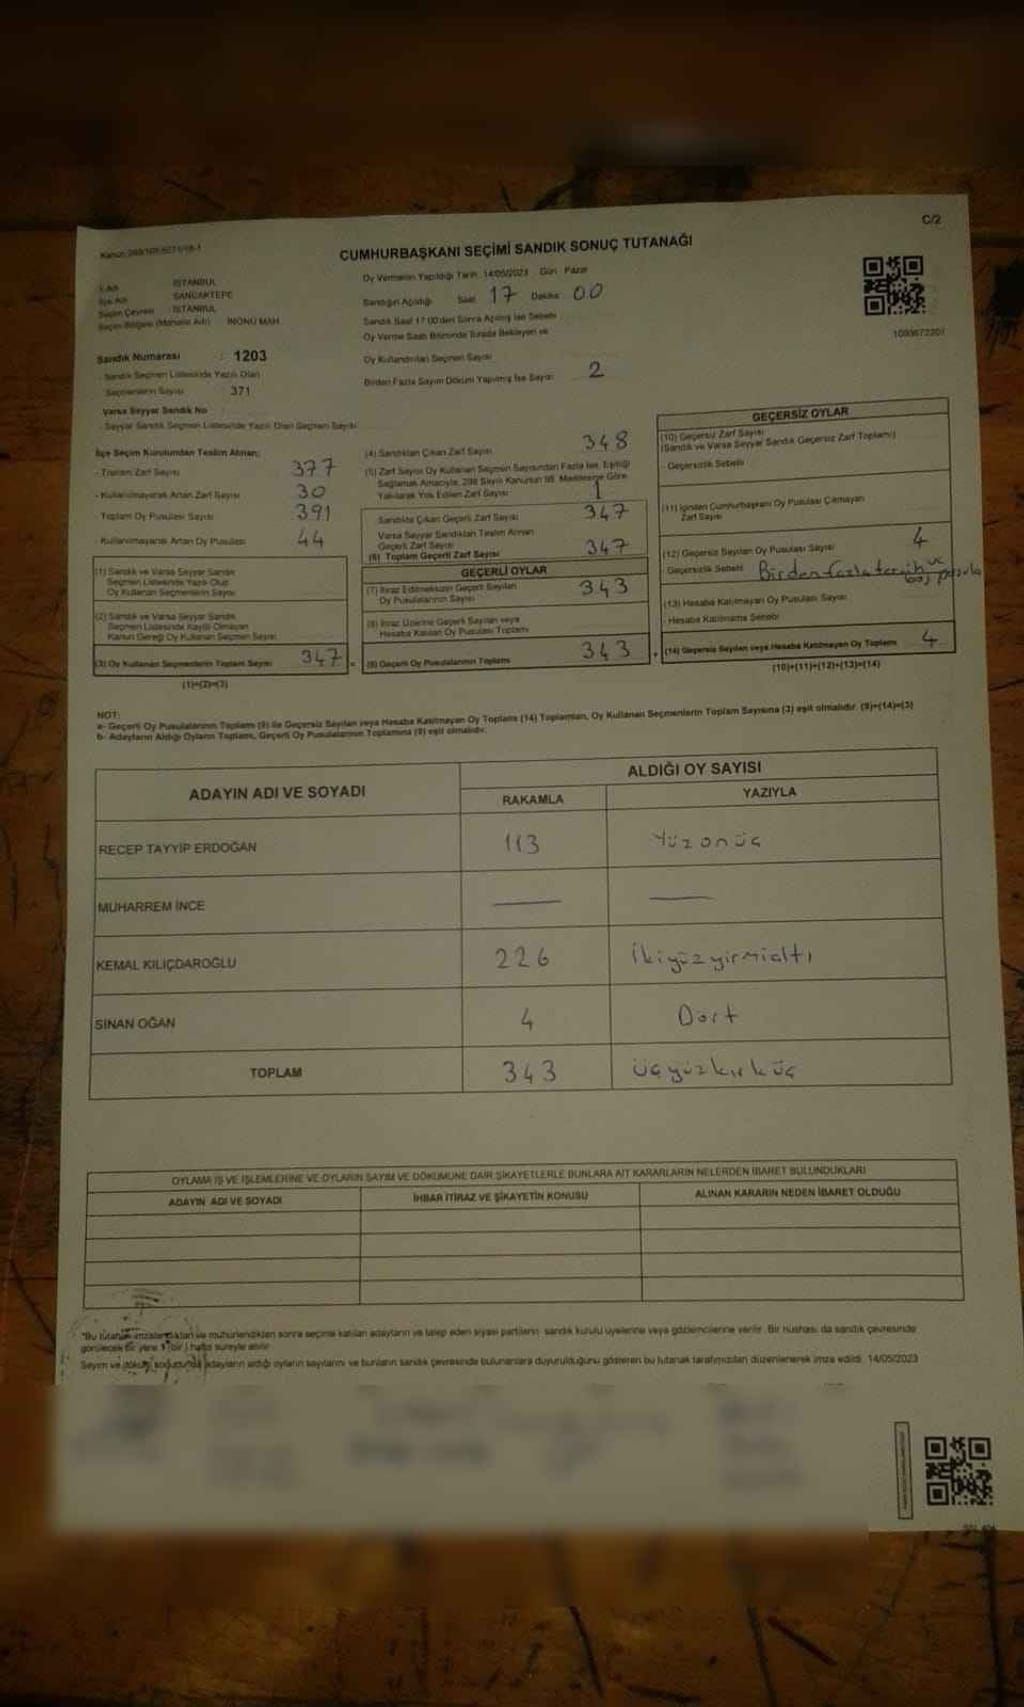 C/2
CUMHURBAŞKANI SEÇİMİ SANDIK SONUÇ TUTANAĞI
İSTANBUL
SANCAKTEPE
Seçim Çevresi İSTANBUL
Seçim Bölgesi (Mahalle Adı) İNÖNÜ MAH.
Oy Vermenin Yapıldığı Tarih 14/05/2023 Gün Pazar
Sandığın Açıldığı Saat 17 Dakika 00
Sandık Saat 17:00'den Sonra Açılmış İse Sebebi
Oy Verme Saati Bitiminde Sırada Bekleyen ve
Oy Kullandırılan Seçmen Sayısı
Birden Fazla Sayım Döküm Yapılmış İse Sayısı 2
Sandık Numarası : 1203
- Sandık Seçmen Listesinde Yazılı Olan
Seçmenlerin Sayısı 371
Varsa Seyyar Sandık No
- Seyyar Sandık Seçmen Listesinde Yazılı Olan Seçmen Sayısı
İlçe Seçim Kurulundan Teslim Alınan;
- Toplam Zarf Sayısı 377
- Kullanılmayarak Artan Zarf Sayısı 30
- Toplam Oy Pusulası Sayısı 391
- Kullanılmayarak Artan Oy Pusulası 44
(1) Sandık ve Varsa Seyyar Sandık
Seçmen Listesinde Yazılı Olup
Oy Kullanan Seçmenlerin Sayısı
(2) Sandık ve Varsa Seyyar Sandık
Seçmen Listesinde Kayıtlı Olmayan
Kanun Gereği Oy Kullanan Seçmen Sayısı
(3) Oy Kullanan Seçmenlerin Toplam Sayısı 347
(1)+(2)=(3)
(4) Sandıktan Çıkan Zarf Sayısı 348
(5) Zarf Sayısı Oy Kullanan Seçmen Sayısından Fazla İse, Eşitliği
Sağlamak Amacıyla, 298 Sayılı Kanunun 98. Maddesine Göre
Yakılarak Yok Edilen Zarf Sayısı 1
Sandıkta Çıkan Geçerli Zarf Sayısı 347
Varsa Seyyar Sandıktan Teslim Alınan
Geçerli Zarf Sayısı
(6) Toplam Geçerli Zarf Sayısı 347
GEÇERLİ OYLAR
(7) İtiraz Edilmeksizin Geçerli Sayılan
Oy Pusulalarının Sayısı 343
(8) İtiraz Üzerine Geçerli Sayılan veya
Hesaba Katılan Oy Pusulası Toplamı
(9) Geçerli Oy Pusulalarının Toplamı 343
GEÇERSİZ OYLAR
(10) Geçersiz Zarf Sayısı
(Sandık ve Varsa Seyyar Sandık Geçersiz Zarf Toplamı)
- Geçersizlik Sebebi
(11) İçinden Cumhurbaşkanı Oy Pusulası Çıkmayan
Zarf Sayısı
(12) Geçersiz Sayılan Oy Pusulası Sayısı 4
Geçersizlik Sebebi Birden fazla tercih ve
boş pusula
(13) Hesaba Katılmayan Oy Pusulası Sayısı
- Hesaba Katılmama Sebebi
(14) Geçersiz Sayılan veya Hesaba Katılmayan Oy Toplamı 4
(10)+(11)+(12)+(13)=(14)
NOT:
a- Geçerli Oy Pusulalarının Toplamı (9) ile Geçersiz Sayılan veya Hesaba Katılmayan Oy Toplamı (14) Toplamları, Oy Kullanan Seçmenlerin Toplam Sayısına (3) eşit olmalıdır. (9)+(14)=(3)
b- Adayların Aldığı Oyların Toplamı, Geçerli Oy Pusulalarının Toplamına (9) eşit olmalıdır.
ADAYIN ADI VE SOYADI
ALDIĞI OY SAYISI
RAKAMLA YAZIYLA
RECEP TAYYİP ERDOĞAN 113 Yüzonüç
MUHARREM İNCE — —
KEMAL KILIÇDAROĞLU 226 İkiyüzyirmialtı
SİNAN OĞAN 4 Dört
TOPLAM 343 üçyüzkırküç
OYLAMA İŞ VE İŞLEMLERİNE VE OYLARIN SAYIM VE DÖKÜMÜNE DAİR ŞİKAYETLERLE BUNLARA AİT KARARLARIN NELERDEN İBARET BULUNDUKLARI
ADAYIN ADI VE SOYADI İHBAR İTİRAZ VE ŞİKAYETİN KONUSU ALINAN KARARIN NEDEN İBARET OLDUĞU
*Bu tutanak imzalandıktan ve mühürlendikten sonra seçime katılan adayların ve talep eden siyasi partilerin sandık kurulu üyelerine veya gözlemcilerine verilir. Bir nüshası da sandık çevresinde
görülecek bir yere 1 (bir) hafta süreyle asılır
Sayım ve döküm sonucunda adayların aldığı oyların sayılarını ve bunların sandık çevresinde bulunanlara duyurulduğunu gösteren bu tutanak tarafımızdan düzenlenerek imza edildi. 14/05/2023